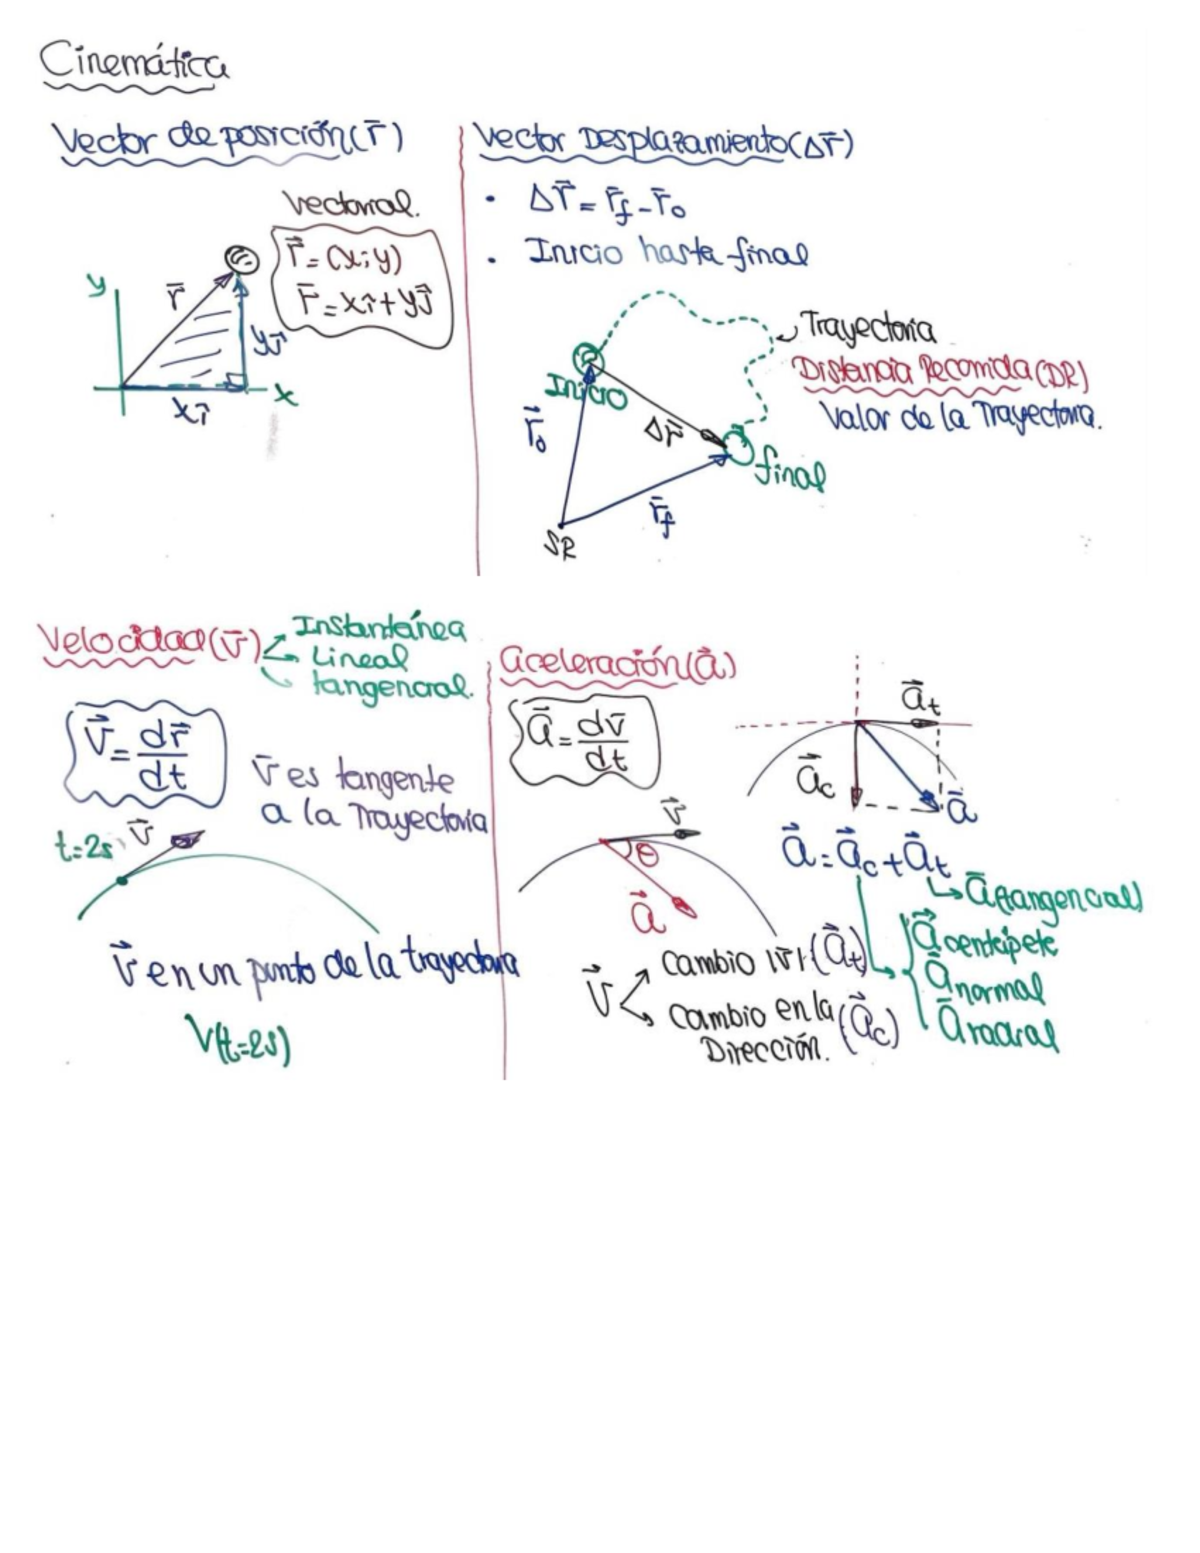 Cinemática
Vector de posición(r⃗)
vectorial.
r⃗=(x;y)
r⃗=xî+yj⃗
y
r⃗
yj⃗
x
xî
Vector Desplazamiento(Δr⃗)
• Δr⃗=r⃗f-r⃗o
• Inicio hasta final
Trayectoria
Distancia Recorrida(DR)
Valor de la Trayectoria.
Inicio
r⃗o
Δr⃗
final
r⃗f
SR
Velocidad(v⃗)
Instantánea
Lineal
tangencial.
v⃗=dr⃗/dt
v⃗ es tangente
a la Trayectoria
t=2s
v⃗
v⃗ en un punto de la trayectoria
V(t=2s)
aceleración(a⃗)
a⃗=dv⃗/dt
a⃗t
a⃗c
a⃗
v⃗
θ
a⃗
a⃗=a⃗c+a⃗t
a⃗(tangencial)
a⃗centrípeta
a⃗normal
a⃗radial
v⃗
Cambio |v⃗| (a⃗t)
Cambio en la (a⃗c)
Dirección.